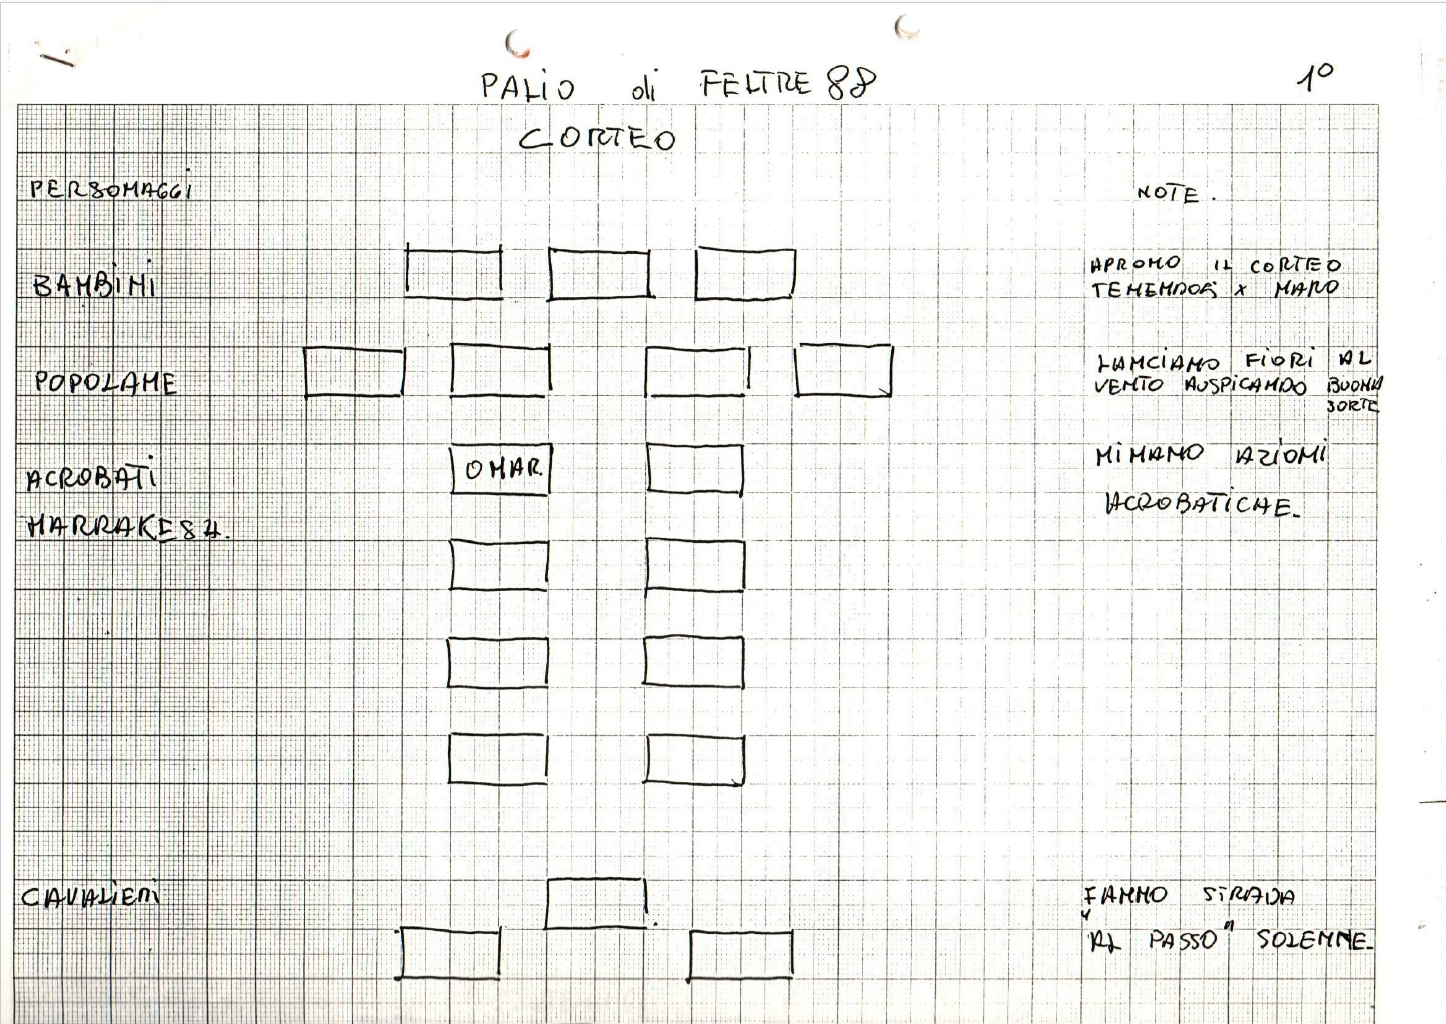 PALIO di FELTRE 88
1º
CORTEO
PERSONAGGI
NOTE.
BAMBINI
APRONO IL CORTEO
TENENDOSI X MANO
POPOLANE
LANCIANO FIORI AL
VENTO AUSPICANDO BUONA
SORTE
ACROBATI
OMAR
MIMANO AZIONI
ACROBATICHE_
MARRAKESH.
CAVALIERI
FANNO STRADA
"AL PASSO" SOLENNE_